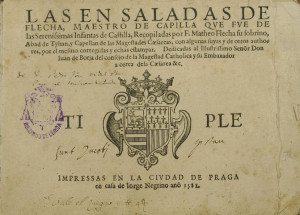 LAS ENSALADAS DE
FLECHA, MAESTRO DE CAPILLA QVE FVE DE
las Serenissimas Infantas de Castilla, Recopiladas por F. Matheo Flecha su sobrino,
Abad de Tyhan y Capellan de las Magestades Cæsareas, con algunas suyas y de otros authores,
por el mesmo corregidas y echas estampar. Dedicadas al Illustrissimo Señor Don
Iuan de Borja del consejo de la Magestad Catholica y su Embaxador
a cerca dela Cæsarea &c.
TI PLE
IMPRESSAS EN LA CIVDAD DE PRAGA
en casa de Iorge Negrino anõ 1581.